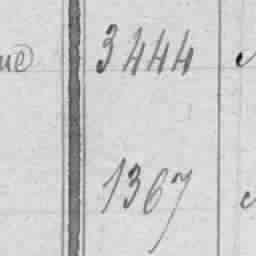 3444
1367